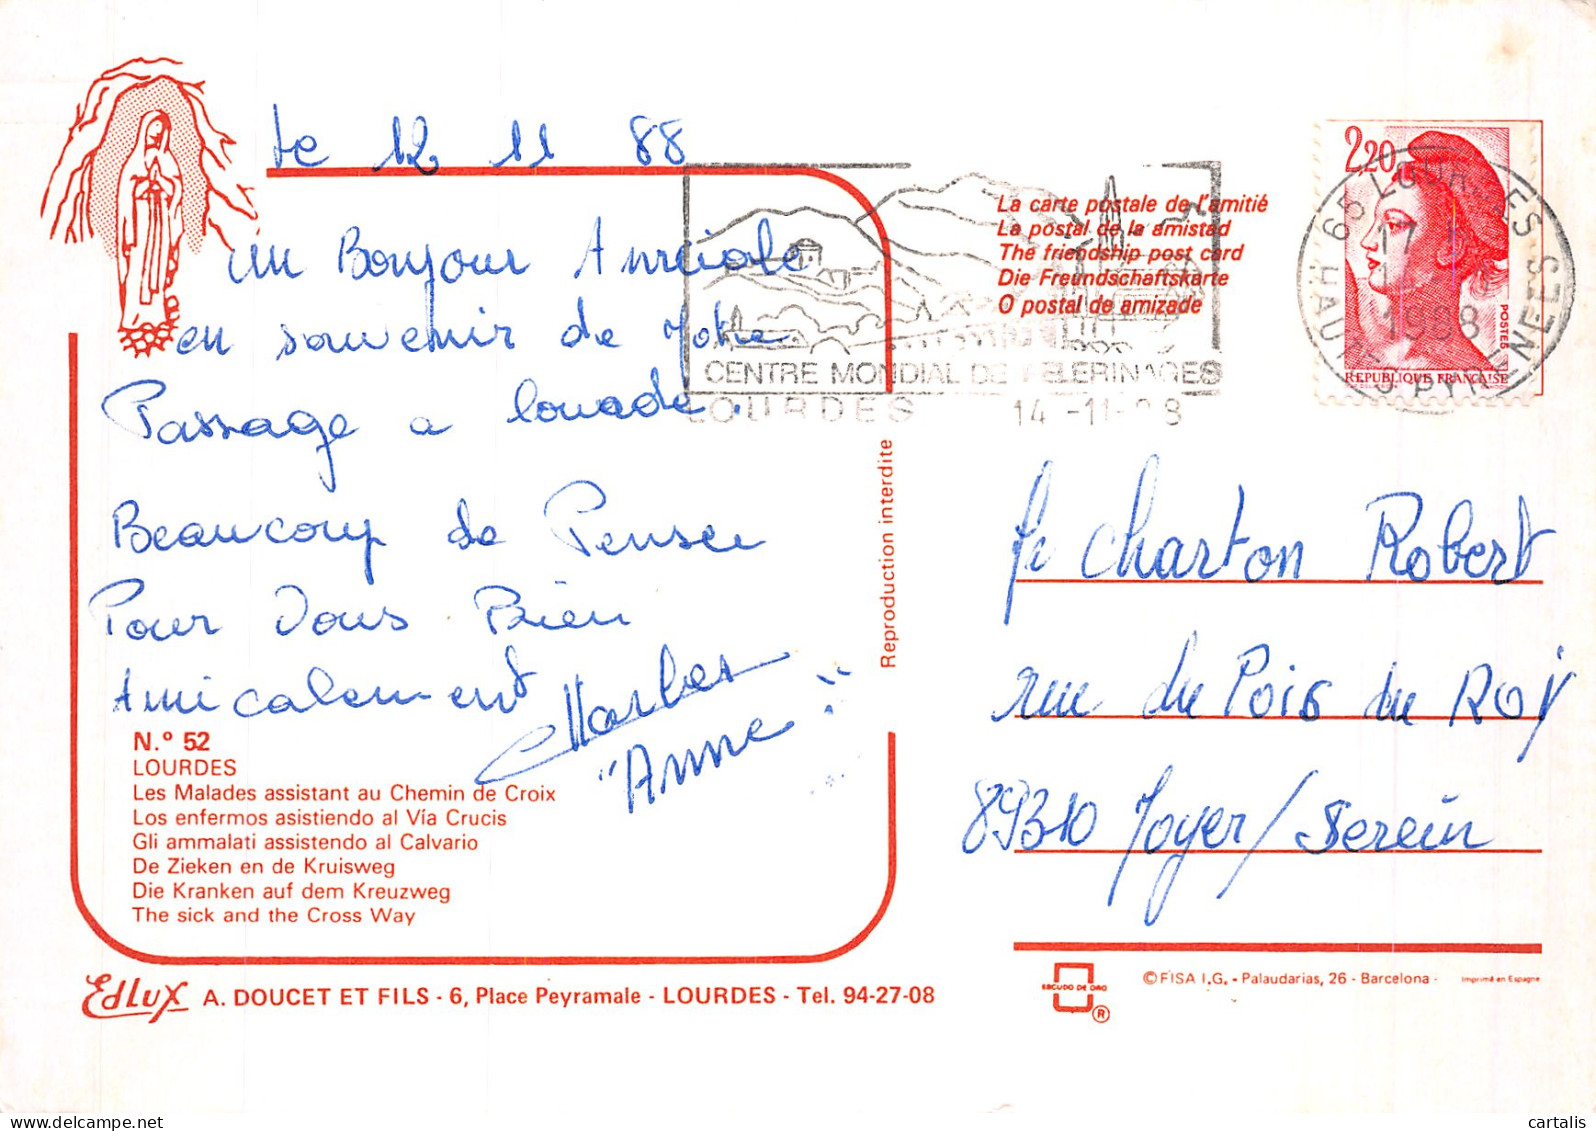 Le 12 11 88
Un Bonjour Amicale
en souvenir de Notre
Passage a
Beaucoup de Pensee
Pour Vous Bien
Amicalement
"Anne"
N.º 52
LOURDES
Les Malades assistant au Chemin de Croix
Los enfermos asistiendo al Vía Crucis
Gli ammalati assistendo al Calvario
De Zieken en de Kruisweg
Die Kranken auf dem Kreuzweg
The sick and the Cross Way
EdLux A. DOUCET ET FILS - 6, Place Peyramale - LOURDES - Tel. 94-27-08
Reproduction interdite
La carte postale de l'amitié
La postal de la amistad
The friendship post card
Die Freundschaftskarte
O postal de amizade
CENTRE MONDIAL DE PELERINAGES
LOURDES 14-11-88
2,20
POSTES
REPUBLIQUE FRANÇAISE
65 LOURDES
1988
HAUTES PYRENEES
Charton Robert
rue du Pois du ROY
89310 Joyer/Serein
ESCUDO DE ORO
®
© FISA I.G. - Palaudarias, 26 - Barcelona - Imprimé en Espagne
cartalis
www.delcampe.net